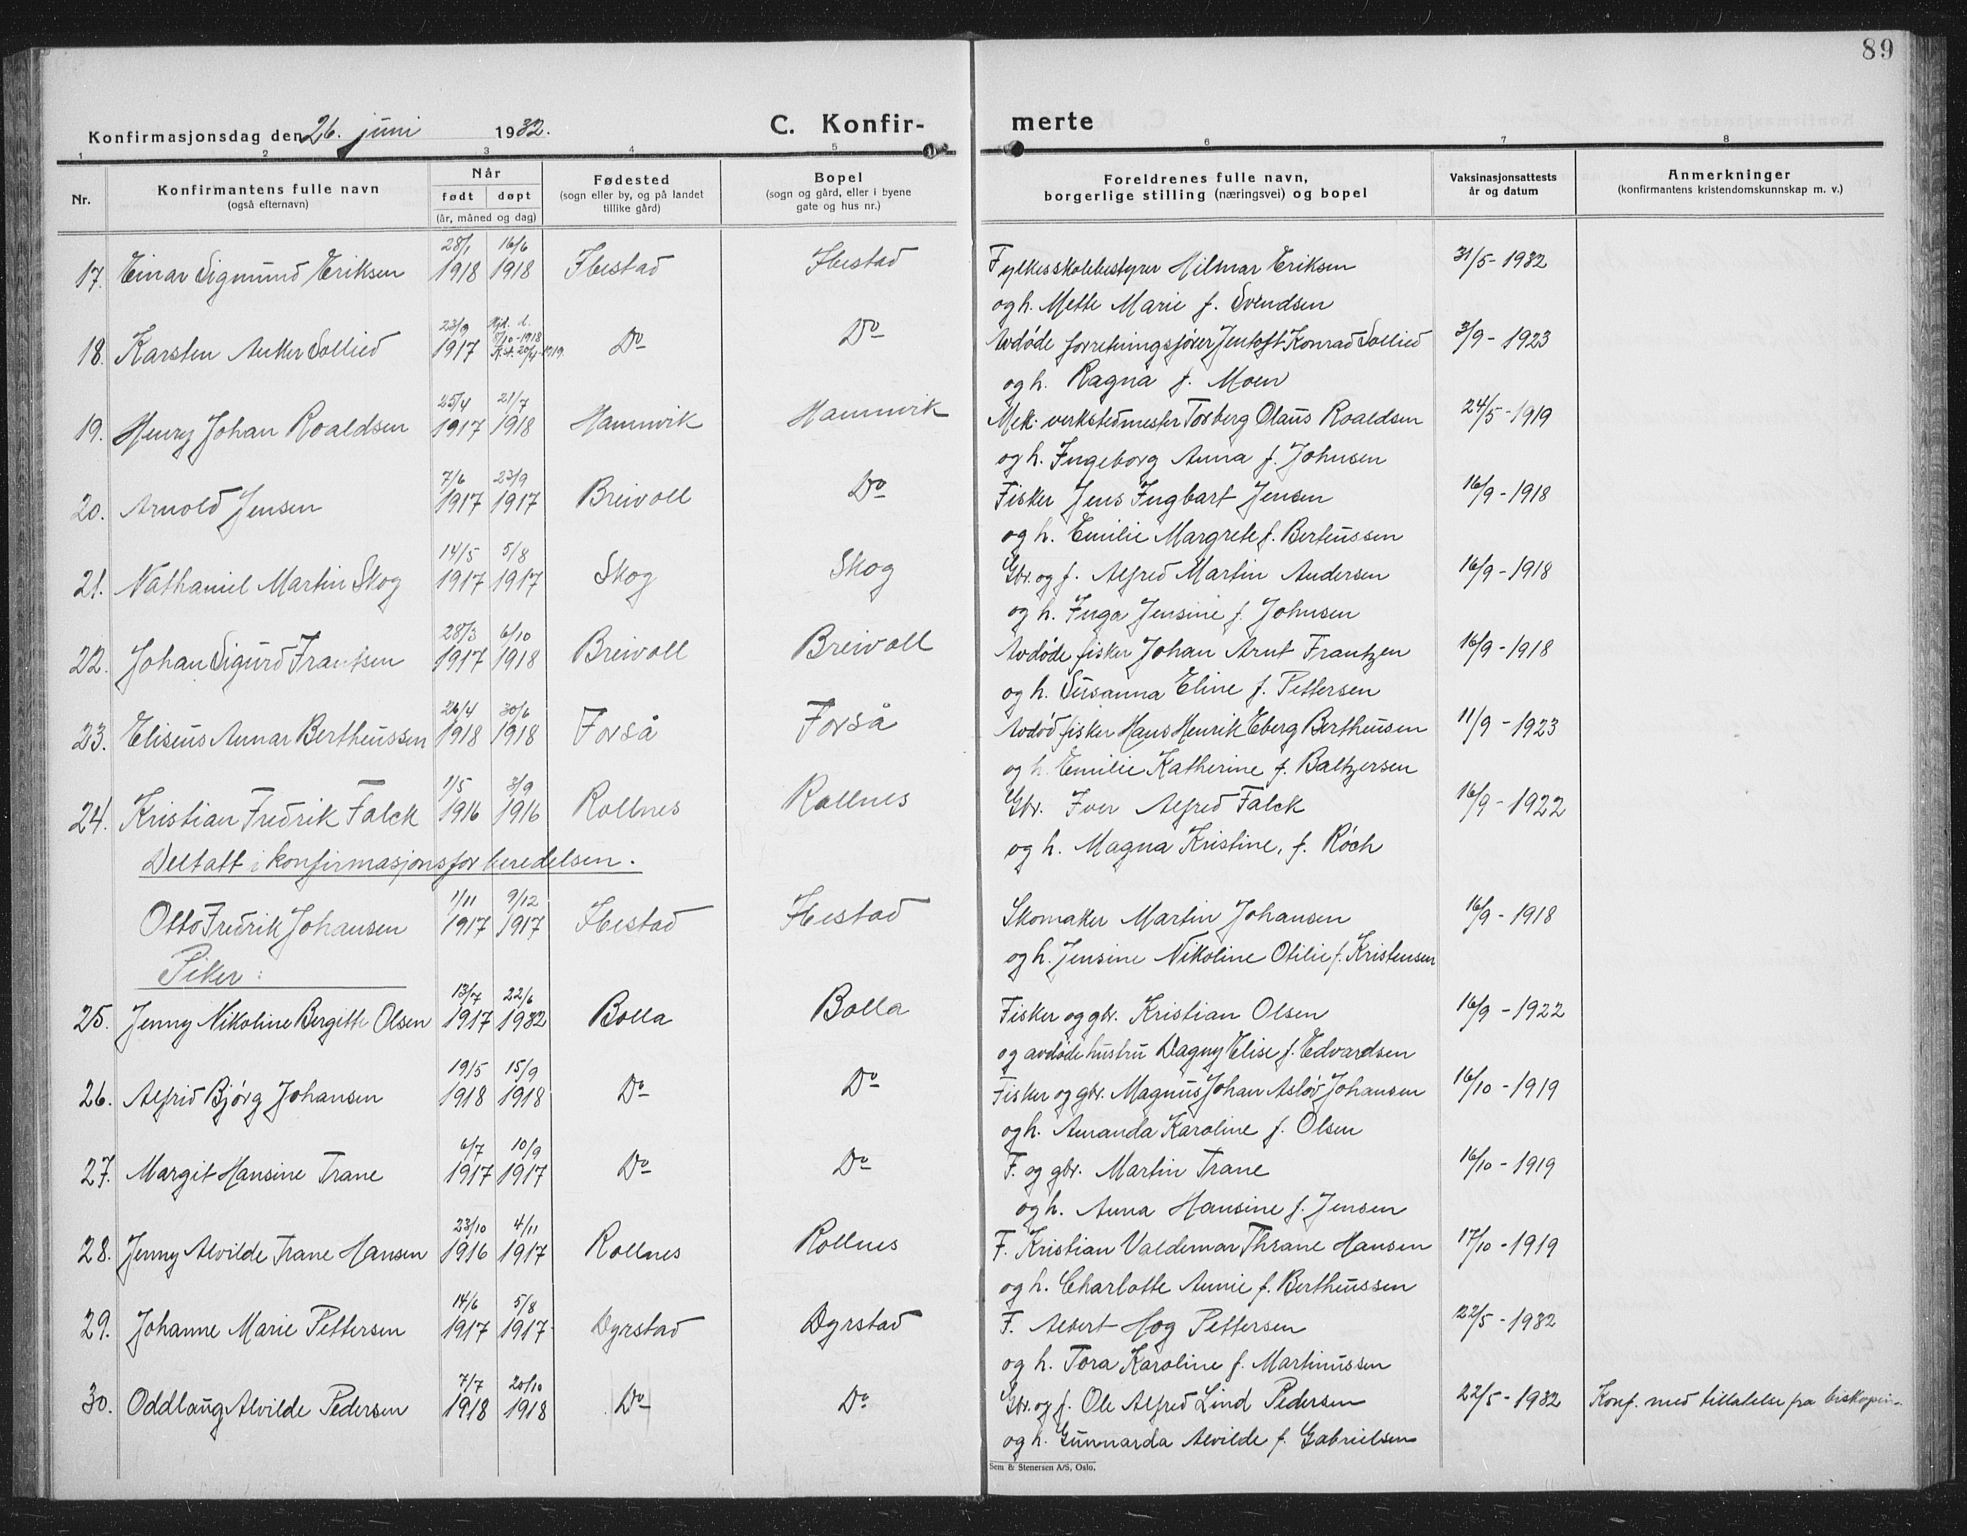 89
Konfirmasjonsdag den 26. juni 1932. C. Konfir- merte
1 2 3 4 5 6 7 8
Nr. Konfirmantens fulle navn (også efternavn) Når født døpt (år, måned og dag) Fødested (sogn eller by, og på landet tillike gård) Bopel (sogn og gård, eller i byene gate og hus nr.) Foreldrenes fulle navn, borgerlige stilling (næringsvei) og bopel Vaksinasjonsattests år og datum Anmerkninger (konfirmantens kristendomskunnskap m. v.)
17. Einar Sigmund Eriksen 28/1 1918 16/6 1918 Ibestad Ibestad Fylkesskolebestyrer Hilmar Eriksen 31/5-1932
og h. Mette Marie f. Svendsen
18. Karsten Anker Sollied 23/9 1917 Hjd. d. 8/10-1918 K.st. 20/4-1919. Do Do Avdøde forretningsfører Jentoft Konrad Sollied 3/9-1923
og h. Ragna f. Moen
19. Henry Johan Roaldsen 25/4 1917 21/7 1918 Hamnvik Hamnvik Mek. verkstedmester Torberg Olaus Roaldsen 24/5-1919
og h. Ingeborg Anna f. Johnsen
20. Arnold Jensen 7/6 1917 23/9 1917 Breivoll Do Fisker Jens Ingbart Jensen 16/9-1918
og h. Emilie Margrete f. Berteussen
21. Nathaniel Martin Skog 14/5 1917 5/8 1917 Skog Skog Gbr. og f. Alfred Martin Andersen 16/9-1918
og h. Inga Jensine f. Johnsen
22. Johan Sigurd Frantsen 28/3 1917 6/10 1918 Breivoll Breivoll Avdøde fisker Johan Arnt Frantzen 16/9-1918
og h. Susanna Eline f. Pettersen
23. Eliseus Annar Bertheussen 26/4 1918 30/6 1918 Forså Forså Avdød fisker Hans Henrik Eberg Bertheusen 11/9-1923
og h. Emilie Katherine f. Baltzersen
24. Kristian Fredrik Falck 1/5 1916 3/9 1916 Rollnes Rollnes Gbr. Iver Alfred Falck 16/9-1922
og h. Magna Kristine, f. Røch
Deltatt i konfirmasjonsforberedelsen.
Otto Fredrik Johansen 1/11 1917 9/12 1917 Ibestad Ibestad Skomaker Martin Johansen 16/9-1918
og h. Jensine Nikoline Otilie f. Kristensen
Piker:
25. Jenny Nikoline Bergitte Olsen 13/7 1917 22/6 1932 Bolla Bolla Fisker og gbr. Kristian Olsen 16/9-1922
og avdøde hustru Dagny Elise f. Edvardsen
26. Alfrid Bjørg Johansen 19/5 1918 15/9 1918 Do Do Fisker og gbr. Magnus Johan Asløv Johansen 16/10-1919
og h. Amanda Karoline f. Olsen
27. Margit Hansine Trane 6/7 1917 10/9 1917 Do Do F. og gbr. Martin Trane 16/10-1919
og h. Anna Hansine f. Jensen
28. Jenny Alvilde Trane Hansen 23/10 1916 4/11 1917 Rollnes Rollnes F. Kristian Valdemar Thrane Hansen 17/10-1919
og h. Charlotte Annie f. Bertheussen
29. Johanne Marie Pettersen 14/6 1917 5/8 1917 Dyrstad Dyrstad F. Albert Hog Pettersen 22/5-1932
og h. Tora Karoline f. Martinussen
30. Oddlaug Alvilde Pedersen 7/7 1918 20/10 1918 Do Do Gbr. og f. Ole Alfred Lind Pedersen 22/5-1932 Konf. med tillatelse fra biskopen.
og h. Gunnarda Alvilde f. Gabrielsen
Sem & Stenersen A/S, Oslo.